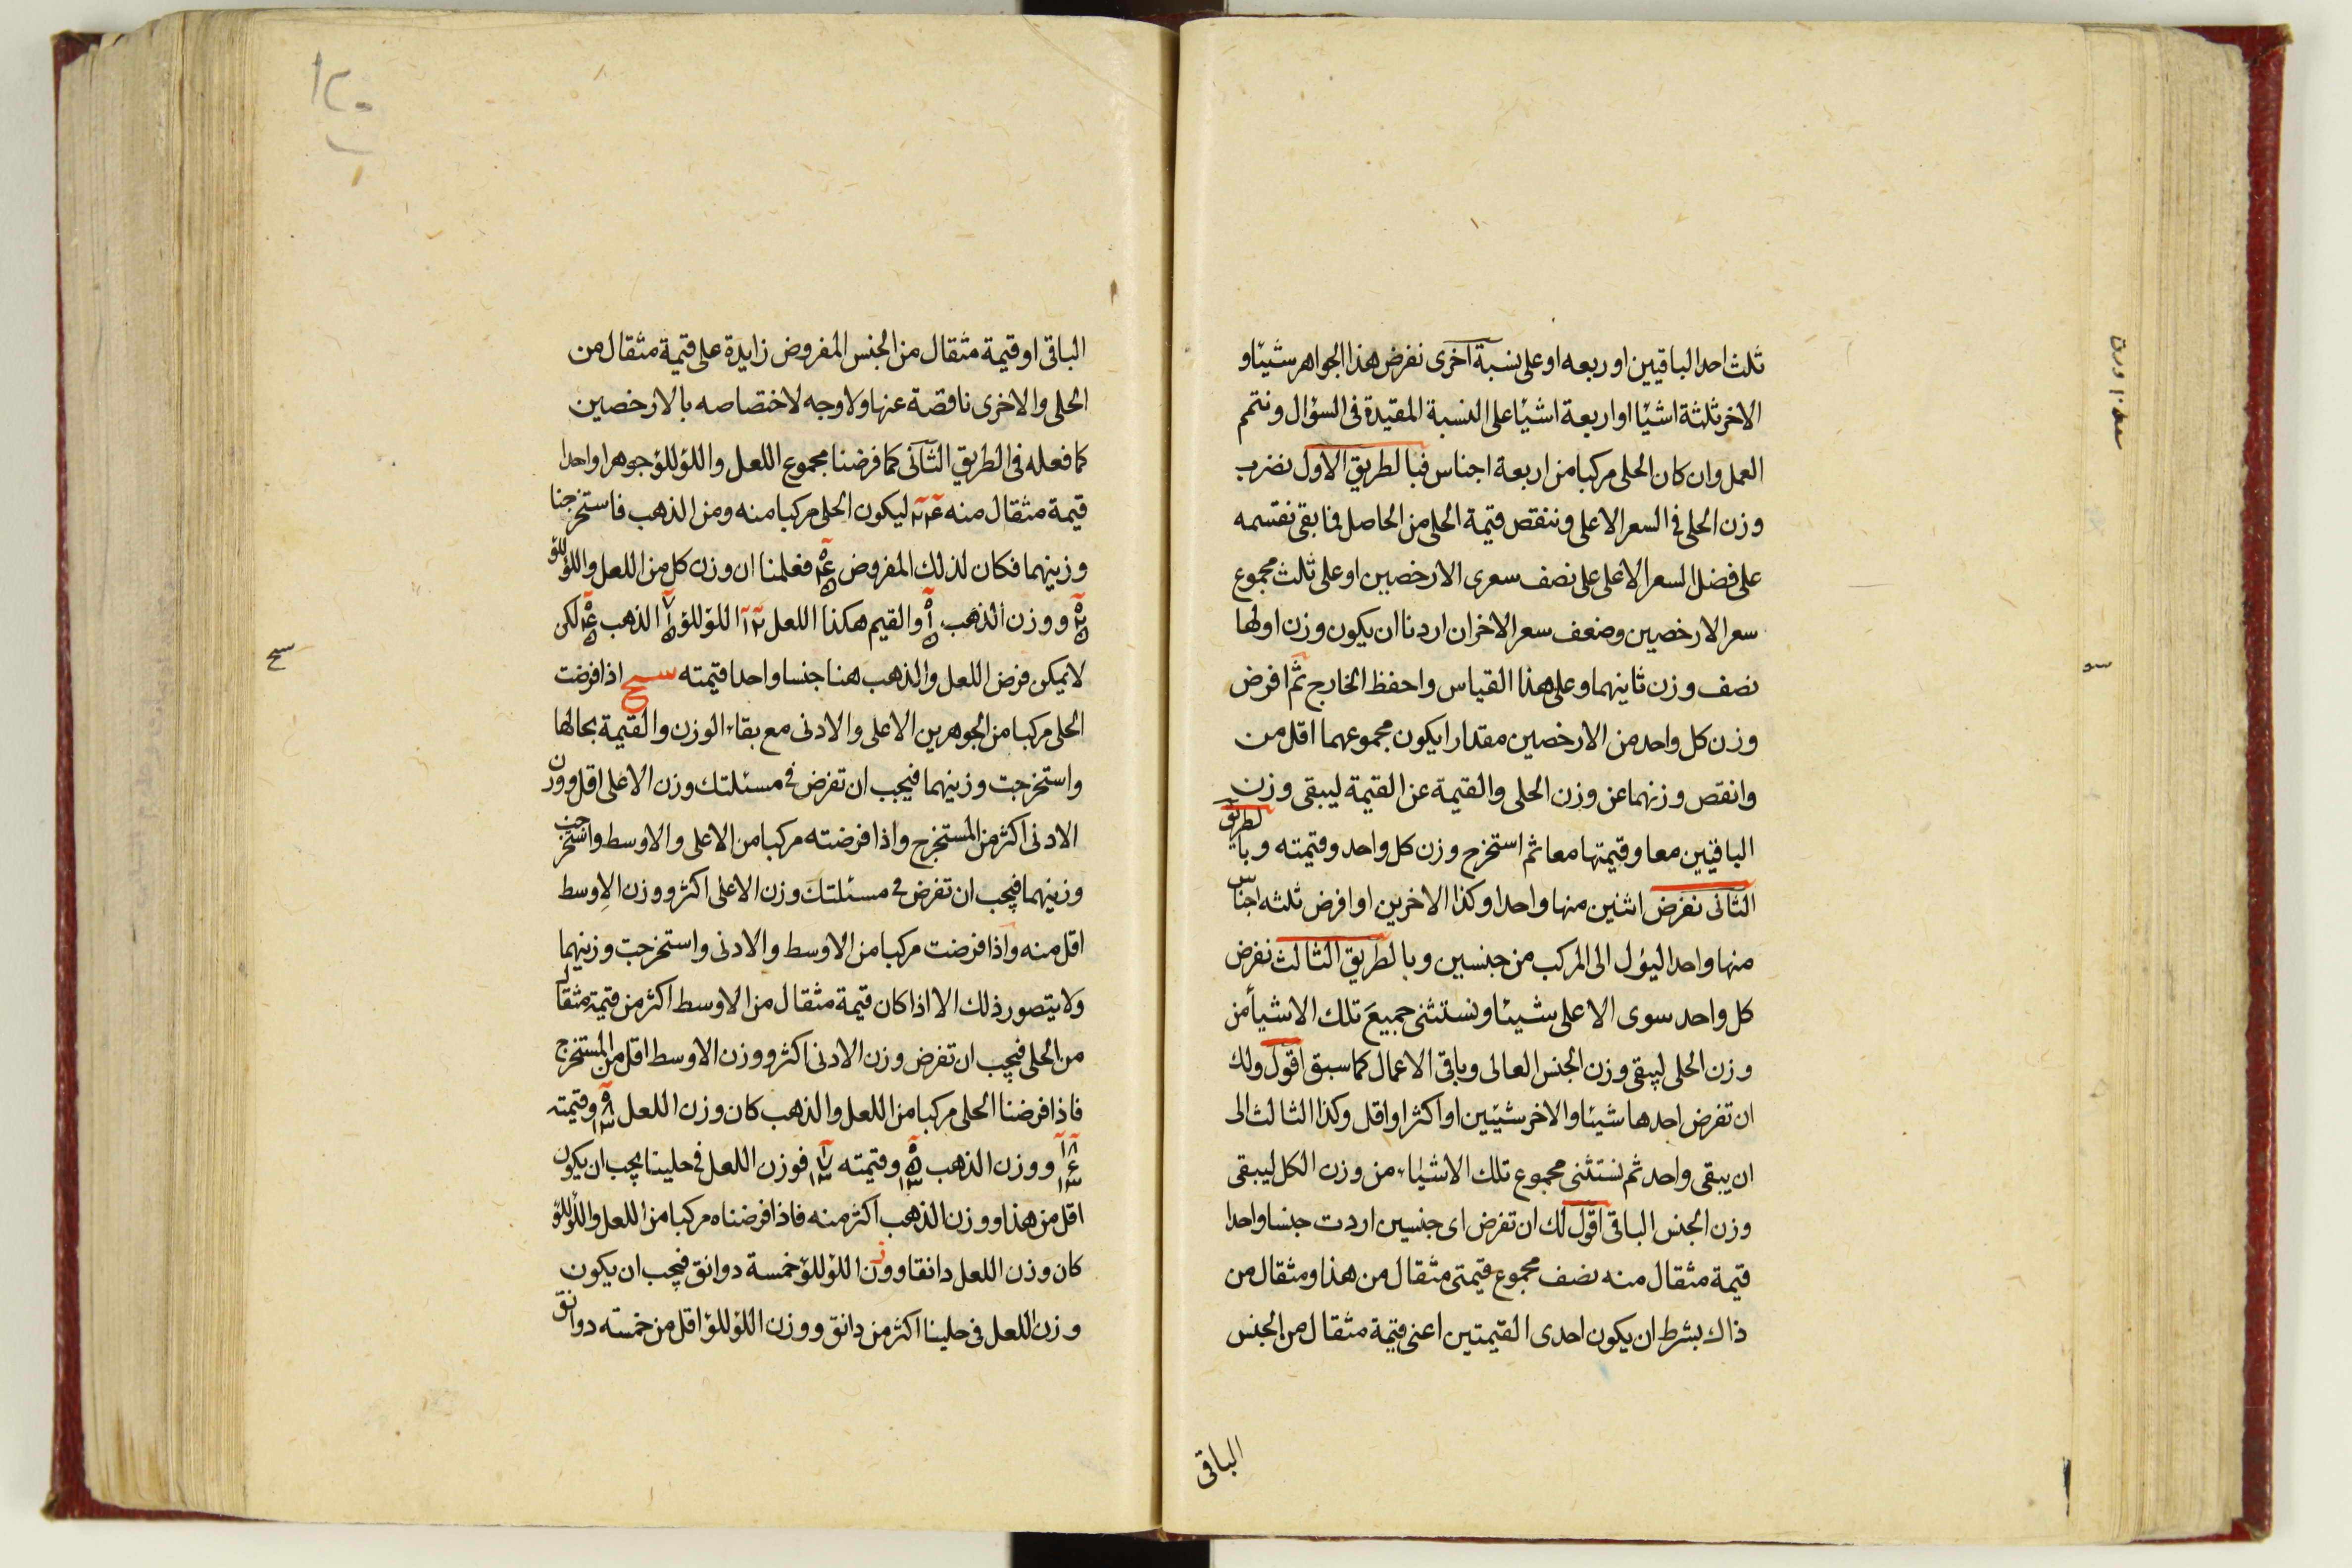 ثلث احد الباقيين او ربعه او على نسبة اخرى نفرض هذا الجواهر شيئا و
الاخر ثلثة اشيئا او اربعة اشيئا على النسبة المقيدة فى السؤال ونتمم
العمل وان كان الحلى مركبا من اربعة اجناس فبالطريق الاول نضرب
وزن الحلى فى السعر الاعلى وننقص قيمة الحلى من الحاصل فما بقى نقسمه
على فضل السعر الاعلى على نصف سعرى الارخصين او على ثلث مجموع
سعر الارخصين وضعف سعر الاخر ان اردنا ان يكون وزن اولها
نصف وزن ثانيهما وعلى هذا القياس واحفظ الخارج ثم افرض
وزن كل واحد من الارخصين مقدارا يكون مجموعهما اقل من
وانقص وزنهما عن وزن الحلى والقيمة عن القيمة ليبقى وزن
الباقيين معا وقيمتها معا ثم استخرج وزن كل واحد وقيمته وبالطريق
الثانى نفرض اثنين منها واحدا وكذا الاخرين او افرض ثلثه اجناس
منها واحدا ليؤل الى المركب من جنسين وبالطريق الثالث نفرض
كل واحد سوى الاعلى شيئا ونستثنى جميع تلك الاشيأ من
وزن الحلى ليبقى وزن الجنس العالى وباقى الاعمال كما سبق اقول ولك
ان تفرض احدها شيئا والاخر شيئين او اكثر او اقل وكذا الثالث الى
ان يبقى واحد ثم نستثنى مجموع تلك الاشياء من وزن الكل ليبقى
وزن الجنس الباقى اقول لك ان تفرض اى جنسين اردت جنسا واحدا
قيمة مثقال منه نصف مجموع قيمتى مثقال من هذا ومثقال من
ذاك بشرط ان يكون احدى القيمتين اعنى قيمة مثقال من الجنس
الباقى
سو
الباقى او قيمة مثقال من الجنس المفروض زايدة على قيمة مثقال من
الحلى والاخرى ناقصة عنها ولا وجه لاختصاصه بالارخصين
كما فعله فى الطريق الثانى كما فرضنا مجموع اللعل واللؤللؤ جوهرا واحدا
قيمة مثقال منه ليكون الحلى مركبا منه ومن الذهب فاستخرجنا
وزنيهما فكان لذلك المفروض فعلمنا ان وزن كل من اللعل واللؤللؤ
ووزن الذهب والقيم هكذا اللعل اللؤللؤ الذهب لكن
لا يمكن فرض اللعل والذهب هنا جنسا واحدا قيمته سح اذا فرضت
الحلى مركبا من الجوهرين الاعلى والادنى مع بقاء الوزن والقيمة بحالها
واستخرجت وزنيهما فيجب ان تفرض فى مسئلتك وزن الاعلى اقل ووزن
الادنى اكثر من المستخرج واذا فرضته مركبا من الاعلى والاوسط واستخرجت
وزنيهما فيجب ان تفرض فى مسئلتك وزن الاعلى اكثر ووزن الاوسط
اقل منه واذا فرضت مركبا من الاوسط والادنى واستخرجت وزنيهما
ولا يتصور ذلك الا اذا كان قيمة مثقال من الاوسط اكثر من قيمة مثقال
من الحلى فيجب ان تفرض وزن الادنى اكثر ووزن الاوسط اقل من المستخرج
فاذا فرضنا الحلى مركبا من اللعل والذهب كان وزن اللعل وقيمته
ووزن الذهب وقيمته فوزن اللعل فى حلينا يجب ان يكون
اقل من هذا ووزن الذهب اكثر منه فاذا فرضناه مركبا من اللعل واللؤللؤ
كان وزن اللعل دانقا ووزن اللؤللؤ خمسة دوانق فيجب ان يكون
وزن اللعل فى حلينا اكثر من دانق ووزن اللؤللؤ اقل من خمسه دوانق
سح